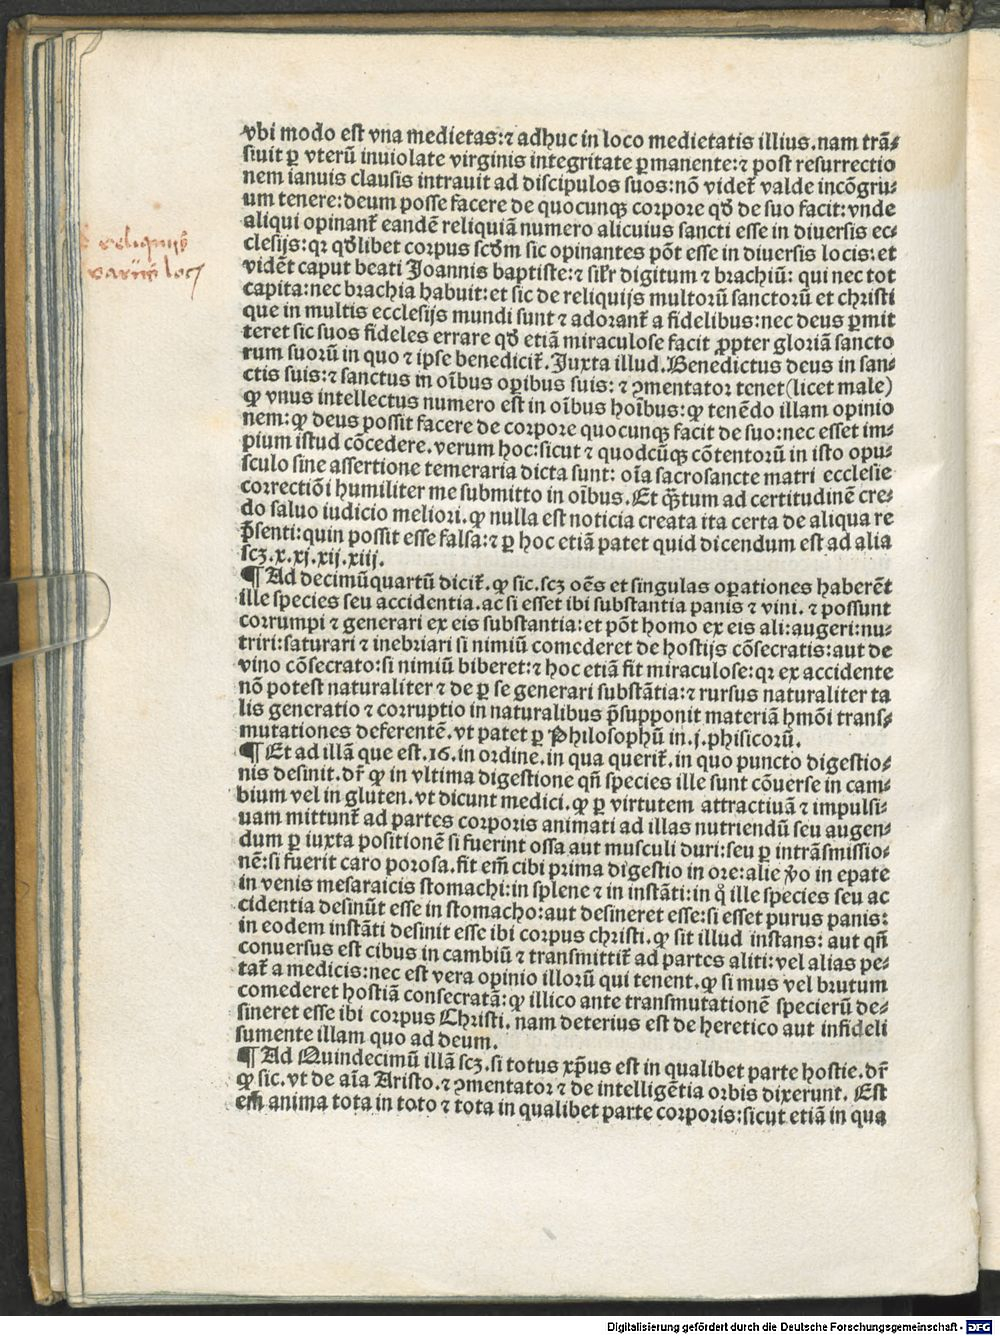 vbi modo est vna medietas:⁊ adhuc in loco medietatis illius.nam trã⸗
siuit ꝑ vterũ inuiolate virginis integritate ꝑmanente:⁊ post resurrectio
nem ianuis clausis intrauit ad discipulos suos:nõ videt̃ valde incõgru⸗
um tenere:deum posse facere de quocunqꝫ corpore qð de suo facit:vnde
aliqui opinant̃ eandẽ reliquiã numero alicuius sancti esse in diuersis ec⸗
clesijs:qꝛ qðlibet corpus scðm sic opinantes põt esse in diuersis locis:et
vidẽt caput beati Joannis baptiste:⁊ silr̃ digitum ⁊ brachiũ: qui nec tot
capita:nec brachia habuit:et sic de reliquijs multorũ sanctorũ et christi
que in multis ecclesijs mundi sunt ⁊ adorant̃ a fidelibus:nec deus ꝑmit
teret sic suos fideles errare qð etiã miraculose facit ꝓpter gloriã sancto
rum suorũ in quo ⁊ ipse benedicit̃. Juxta illud. Benedictus deus in san⸗
ctis suis:⁊ sanctus in oĩbus oꝑibus suis: ⁊ ꝯmentator tenet (licet male)
ꝙ vnus intellectus numero est in oĩbus hoĩbus:ꝙ tenẽdo illam opinio
nem:ꝙ deus possit facere de corpore quocunqꝫ facit de suo:nec esset im⸗
pium istud cõcedere. verum hoc:sicut ⁊ quodcũqꝫ cõtentorũ in isto opu⸗
sculo sine assertione temeraria dicta sunt: oĩa sacrosancte matri ecclesie
correctiõi humiliter me submitto in oĩbus. Et qᷓtum ad certitudinẽ cre⸗
do saluo iudicio meliori. ꝙ nulla est noticia creata ita certa de aliqua re
p̃senti:quin possit esse falsa:⁊ ꝑ hoc etiã patet quid dicendum est ad alia
scꝫ.x.xj.xij.xiij.
¶ Ad decimũquartũ dicit̃. ꝙ sic. scꝫ oẽs et singulas oꝑationes haberẽt
ille species seu accidentia. ac si esset ibi substantia panis ⁊ vini. ⁊ possunt
corrumpi ⁊ generari ex eis substantia:et põt homo ex eis ali:augeri:nu⸗
triri:saturari ⁊ inebriari si nimiũ comederet de hostijs cõsecratis:aut de
vino cõsecrato:si nimiũ biberet:⁊ hoc etiã fit miraculose:qꝛ ex accidente
nõ potest naturaliter ⁊ de ꝑ se generari substãtia:⁊ rursus naturaliter ta
lis generatio ⁊ corruptio in naturalibus p̃supponit materiã hmõi trans⸗
mutationes deferentẽ. vt patet ꝑ Philosophũ in .j. phisicorũ.
¶ Et ad illã que est .16. in ordine. in qua querit̃. in quo puncto digestio⸗
nis desinit. dr̃ ꝙ in vltima digestione qñ species ille sunt cõuerse in cam⸗
bium vel in gluten. vt dicunt medici. ꝙ ꝑ virtutem attractiuã ⁊ impulsi⸗
uam mittunt̃ ad partes corporis animati ad illas nutriendũ seu augen⸗
dum ꝑ iuxta positionẽ si fuerint ossa aut musculi duri:seu ꝑ intrãsmissio⸗
nẽ:si fuerit caro porosa. fit em̃ cibi prima digestio in ore:alie ꝟo in epate
in venis mesaraicis stomachi:in splene ⁊ in instãti:in qͦ ille species seu ac
cidentia desinũt esse in stomacho:aut desineret esse:si esset purus panis:
in eodem instãti desinit esse ibi corpus christi. ꝙ sit illud instans: aut qñ
conuersus est cibus in cambiũ ⁊ transmittit̃ ad partes aliti:vel alias pe⸗
tat̃ a medicis:nec est vera opinio illorũ qui tenent. ꝙ si mus vel brutum
comederet hostiã consecratã:ꝙ illico ante transmutationẽ specierũ de⸗
sineret esse ibi corpus Christi. nam deterius est de heretico aut infideli
sumente illam quo ad deum.
¶ Ad Quindecimũ illã scꝫ. si totus xp̃us est in qualibet parte hostie. dr̃
ꝙ sic. vt de aĩa Aristo. ⁊ ꝯmentator ⁊ de intelligẽtia orbis dixerunt. Est
em̃ anima tota in toto ⁊ tota in qualibet parte corporis:sicut etiã in qua
reliquijs
varijs locꝭ
Digitalisierung gefördert durch die Deutsche Forschungsgemeinschaft - DFG